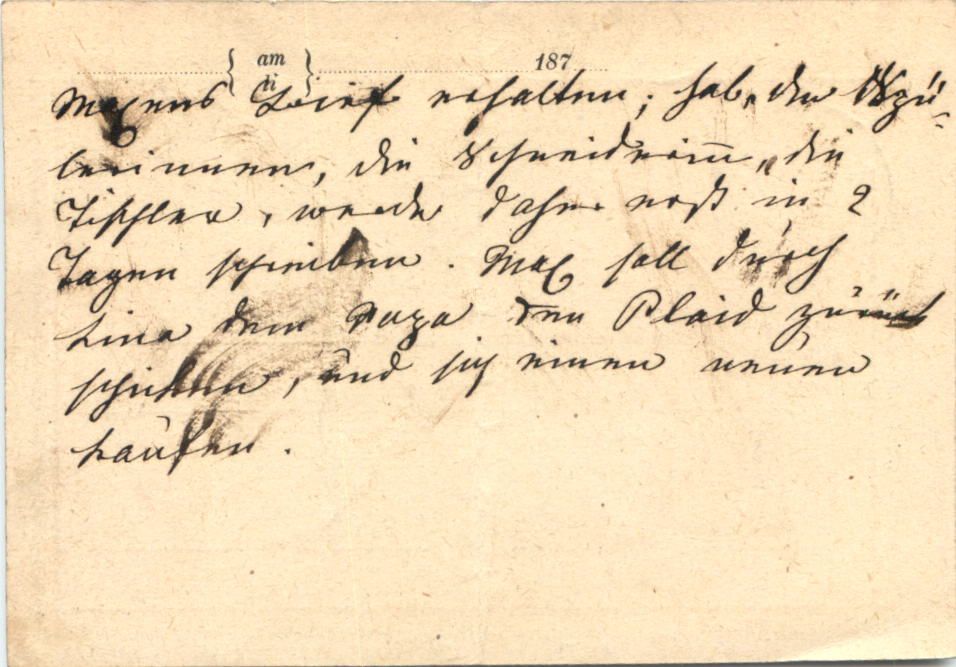 am
di
187
Maxens Brief erhalten; habe den
lerinnen, die Schneiderin, die
Tischler, werde daher erst in 2
Tagen schreiben. Max soll durch
Lina dem Papa den Plaid zurück
schicken, und sich einen neuen
kaufen.